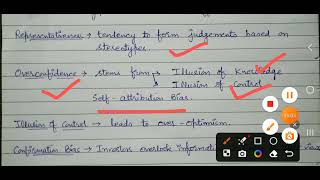 Representativeness → tendency to form judgements based on
stereotypes.
Overconfidence → stems from → Illusion of Knowledge
Illusion of Control
Self-attribution Bias.
Illusion of Control → leads to over-optimism.
Confirmation Bias → Investors overlook information